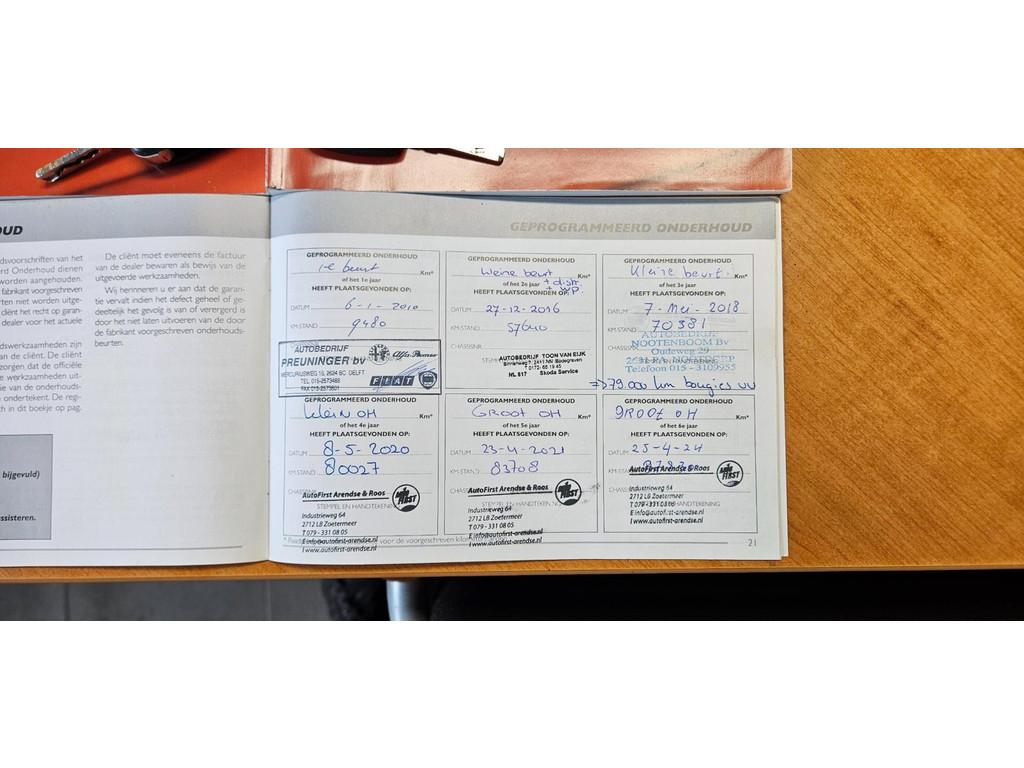 OUD
dsvoorschriften van het
erd Onderhoud dienen
worden aangehouden.
fabrikant voorgeschreven
rten niet worden uitge-
cliënt het recht op garan-
dealer voor het actuele
dswerkzaamheden zijn
an de cliënt. De cliënt
zorgen dat de officiële
e werkzaamheden uit-
ie van de onderhouds-
ondertekent. De regi-
ch in dit boekje op pag.
bijgevuld)
ssisteren.
De cliënt moet eveneens de factuur
van de dealer bewaren als bewijs van de
uitgevoerde werkzaamheden.
Wij herinneren u er aan dat de garan-
tie vervalt indien het defect geheel of ge-
deeltelijk het gevolg is van of verergerd is
door het niet laten uitvoeren van de door
de fabrikant voorgeschreven onderhouds-
beurten.
GEPROGRAMMEERD ONDERHOUD
GEPROGRAMMEERD ONDERHOUD
1-e beurt Km*
of het 1e jaar
HEEFT PLAATSGEVONDEN OP:
DATUM 6-1-2010
KM-STAND 9480
AUTOBEDRIJF
PREUNINGER bv Alfa Romeo
MERCURIUSWEG 16, 2624 BC DELFT
TEL. 015-2573468
FAX 015-2573601
FIAT
GEPROGRAMMEERD ONDERHOUD
kleine beurt Km*
of het 2e jaar + distr.
HEEFT PLAATSGEVONDEN OP: + WP.
DATUM 27-12-2016
KM-STAND 57640
CHASSISNR.
AUTOBEDRIJF TOON VAN EIJK
NL 817 Skoda Service
GEPROGRAMMEERD ONDERHOUD
Kleine beurt. Km*
of het 3e jaar
HEEFT PLAATSGEVONDEN OP:
DATUM 7-Mei-2018
KM-STAND 70381
AUTOBEDRIJF
NOOTENBOOM Bv
Oudeweg 29
Telefoon 015 - 3109955
=> 79.000 km bougies vv
GEPROGRAMMEERD ONDERHOUD
klein OH Km*
of het 4e jaar
HEEFT PLAATSGEVONDEN OP:
DATUM 8-5-2020
KM-STAND 80027
AutoFirst Arendse & Roos
STEMPEL EN HANDTEKENING
Industrieweg 64
2712 LB Zoetermeer
T 079 - 331 08 05
E info@autofirst-arendse.nl
I www.autofirst-arendse.nl
voor de voorgeschreven
GEPROGRAMMEERD ONDERHOUD
GROOT OH Km*
of het 5e jaar
HEEFT PLAATSGEVONDEN OP:
DATUM 23-4-2021
KM-STAND 83708
AutoFirst Arendse & Roos
STEMPEL EN HANDTEKENING
Industrieweg 64
2712 LB Zoetermeer
T 079 - 331 08 05
E info@autofirst-arendse.nl
I www.autofirst-arendse.nl
GEPROGRAMMEERD ONDERHOUD
GROOT OH Km*
of het 6e jaar
HEEFT PLAATSGEVONDEN OP:
DATUM 25-4-24
KM-STAND
AutoFirst Arendse & Roos
Industrieweg 64
2712 LB Zoetermeer
E info@autofirst-arendse.nl
I www.autofirst-arendse.nl
21